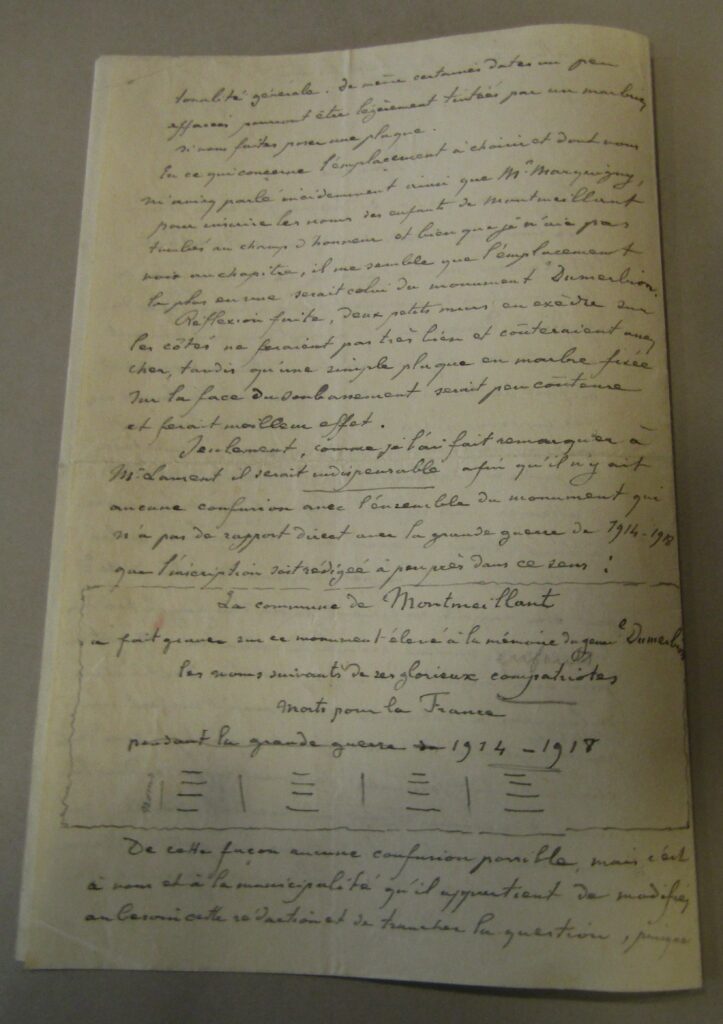 tonalité générale. De même certaines dates un peu
effacées pourront être légèrement teintées par un marbrier
si vous faites poser une plaque.
En ce qui concerne l'emplacement à choisir et dont vous
m'aviez parlé incidemment ainsi que Mr Marquigny,
pour inscrire les noms des enfants de Montmeillant
tombés au champ d'honneur et bien que je n'aie pas
voix au chapitre, il me semble que l'emplacement
le plus en vue serait celui du monument Dumerbion.
Réflexion faite, deux petits murs en exèdre sur
les côtés ne feraient pas très bien et coûteraient assez
cher, tandis qu'une simple plaque en marbre fixée
sur la face du soubassement serait peu coûteuse
et ferait meilleur effet.
Seulement, comme je l'ai fait remarquer à
Mr Laurent il serait indispensable afin qu'il n'y ait
aucune confusion avec l'ensemble du monument qui
n'a pas de rapport direct avec la grande guerre de 1914-1918
que l'inscription soit rédigée à peu près dans ce sens :
La commune de Montmeillant
a fait graver sur ce monument élevé à la mémoire du général Dumerbion
enfants
les noms suivants de ses glorieux compatriotes
Morts pour la France
pendant la grande guerre de 1914-1918
noms
De cette façon aucune confusion possible, mais c'est
à vous et à la municipalité qu'il appartient de modifier
au besoin cette rédaction et de trancher la question,